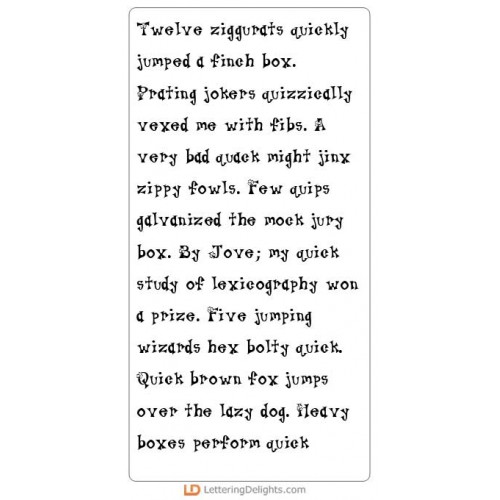 Twelve ziggurats quickly
jumped a finch box.
Prating jokers quizzically
vexed me with fibs. A
very bad quack might jinx
zippy fowls. Few quips
galvanized the mock jury
box. By Jove; my quick
study of lexicography won
a prize. Five jumping
wizards hex bolty quick.
Quick brown fox jumps
over the lazy dog. Heavy
boxes perform quick
LD LetteringDelights.com